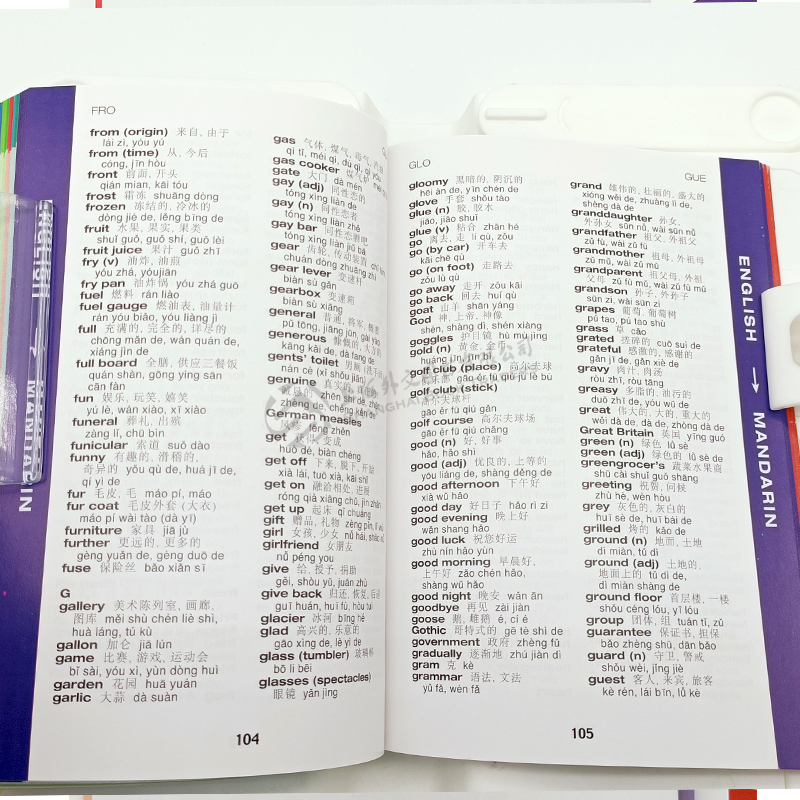 FRO
from (origin) 来自, 由于
lái zì, yóu yú
from (time) 从, 今后
cóng, jīn hòu
front 前面, 开头
qián mian, kāi tóu
frost 霜冻 shuāng dòng
frozen 冻结的, 冷冰的
dòng jié de, lěng bīng de
fruit 水果, 果实, 果类
shuǐ guǒ, guǒ shí, guǒ lèi
fruit juice 果汁 guǒ zhī
fry (v) 油炸, 油煎
yóu zhá, yóujiān
fry pan 油炸锅 yóu zhá guō
fuel 燃料 rán liào
fuel gauge 燃油表, 油量计
rán yóu biǎo, yóu liàng jì
full 充满的, 完全的, 详尽的
chōng mǎn de, wán quán de,
xiáng jìn de
full board 全膳, 供应三餐饭
quán shàn, gōng yìng sān
cān fàn
fun 娱乐, 玩笑, 嬉笑
yú lè, wán xiào, xī xiào
funeral 葬礼, 出殡
zàng lǐ, chū bìn
funicular 索道 suǒ dào
funny 有趣的, 滑稽的,
奇异的 yǒu qù de, huá jī de,
qí yì de
fur 毛皮, 毛 máo pí, máo
fur coat 毛皮外套 (大衣)
máo pí wài tào (dà yī)
furniture 家具 jiā jù
further 更远的, 更多的
gèng yuǎn de, gèng duō de
fuse 保险丝 bǎo xiǎn sī
G
gallery 美术陈列室, 画廊,
图库 měi shù chén liè shì,
huà láng, tú kù
gallon 加仑 jiā lún
game 比赛, 游戏, 运动会
bǐ sài, yóu xì, yùn dòng huì
garden 花园 huā yuán
garlic 大蒜 dà suàn
gas 气体, 煤气, 毒气,
qì tǐ, méi qì, dú qì,
gas cooker 煤气炉
gate 大门 dà mén
gay (adj) 同性恋的
tóng xìng liàn de
gay (n) 同性恋者
tóng xìng liàn zhě
gay bar 同性恋酒吧
tóng xìng liàn jiǔ bā
gear 齿轮, 传动装置
chuán dòng zhuāng zhì
gear lever 变速杆
biàn sù gǎn
gearbox 变速箱
biàn sù xiāng
general 普通, 将军, 概要
pǔ tōng, jiāng jūn, gài yào
generous 慷慨的, 大方的
kāng kǎi de, dà fang de
gents' toilet 男厕
nán cè (xǐ shǒu jiān)
genuine 真实的,
zhēn shí de,
zhèng de, chéng kěn de
German measles
fēng zhěn
get 变成
huò dé, biàn chéng
get off 下来, 脱下, 开始
xià lái, tuō xià, kāi shǐ
get on 融洽相处, 进展
róng qià xiāng chǔ, jìn zhǎn
get up 起床 qǐ chuáng
gift 赠品, 礼物 zèng pǐn, lǐ wù
girl 女孩, 少女 nǚ hái, shào nǚ
girlfriend 女朋友
nǚ péng you
give 给, 授予, 捐助
gěi, shòu yǔ, juān zhù
give back 归还, 恢复, 后退
guī huán, huī fù, hòu tuì
glacier 冰河 bīng hé
glad 高兴的, 乐意的
gāo xìng de, lè yì de
glass (tumbler) 玻璃杯
bō li bēi
glasses (spectacles)
眼镜 yǎn jìng
104
GLO
gloomy 黑暗的, 阴沉的
hēi àn de, yīn chén de
glove 手套 shǒu tào
glue (n) 胶, 胶水
jiāo, jiāo shuǐ
glue (v) 粘合 zhān hé
go 离去, 走 lí qù, zǒu
go (by car) 开车去
kāi chē qù
go (on foot) 走路去
zǒu lù qù
go away 走开 zǒu kāi
go back 回去 huí qù
goat 山羊 shān yáng
God 神, 上帝, 神像
shén, shàng dì, shén xiàng
goggles 护目镜 hù mù jìng
gold (n) 黄金, 金币
huáng jīn, jīn bì
golf club (place) 高尔夫球
俱乐部 gāo ěr fū qiú jù lè bù
golf club (stick)
高尔夫球杆
gāo ěr fū qiú gān
golf course 高尔夫球场
gāo ěr fū qiú chǎng
good (n) 好, 好事
hǎo, hǎo shì
good (adj) 优良的, 上等的
yōu liáng de, shàng děng de
good afternoon 下午好
xià wǔ hǎo
good day 好日子 hǎo rì zi
good evening 晚上好
wǎn shang hǎo
good luck 祝您好运
zhù nín hǎo yùn
good morning 早晨好,
上午好 zǎo chén hǎo,
shàng wǔ hǎo
good night 晚安 wǎn ān
goodbye 再见 zài jiàn
goose 鹅, 雌鹅 é, cí é
Gothic 哥特式的 gē tè shì de
government 政府 zhèng fǔ
gradually 逐渐地 zhú jiàn dì
gram 克 kè
grammar 语法, 文法
yǔ fǎ, wén fǎ
GUE
grand 雄伟的, 壮丽的, 盛大的
xióng wěi de, zhuàng lì de,
shèng dà de
granddaughter 孙女,
外孙女 sūn nǚ, wài sūn nǚ
grandfather 祖父, 外祖父
zǔ fù, wài zǔ fù
grandmother 祖母, 外祖母
zǔ mǔ, wài zǔ mǔ
grandparent 祖父母, 外祖
父母 zǔ fù mǔ, wài zǔ fù mǔ
grandson 孙子, 外孙子
sūn zi, wài sūn zi
grapes 葡萄, 葡萄树
pú tao, pú tao shù
grass 草 cǎo
grated 搓碎的 cuō suì de
grateful 感激的, 感谢的
gǎn jī de, gǎn xiè de
gravy 肉汁, 肉汤
ròu zhī, ròu tāng
greasy 多脂的, 油污的
duō zhī de, yóu wū de
great 伟大的, 大的, 重大的
wěi dà de, dà de, zhòng dà de
Great Britain 英国 yīng guó
green (n) 绿色 lǜ sè
green (adj) 绿色的 lǜ sè de
greengrocer's 蔬菜水果商
shū cài shuǐ guǒ shāng
greeting 祝贺, 问候
zhù hè, wèn hòu
grey 灰色的, 灰白的
huī sè de, huī bái de
grilled 烤的 kǎo de
ground (n) 地面, 土地
dì miàn, tǔ dì
ground (adj) 土地的,
地面上的 tǔ dì de,
dì miàn shàng de
ground floor 首层楼, 一楼
shǒu céng lóu, yī lóu
group 团体, 组 tuán tǐ, zǔ
guarantee 保证书, 担保
bǎo zhèng shū, dān bǎo
guard (n) 守卫, 警戒
shǒu wèi, jǐng jiè
guest 客人, 来宾, 旅客
kè rén, lái bīn, lǚ kè
105
ENGLISH → MANDARIN